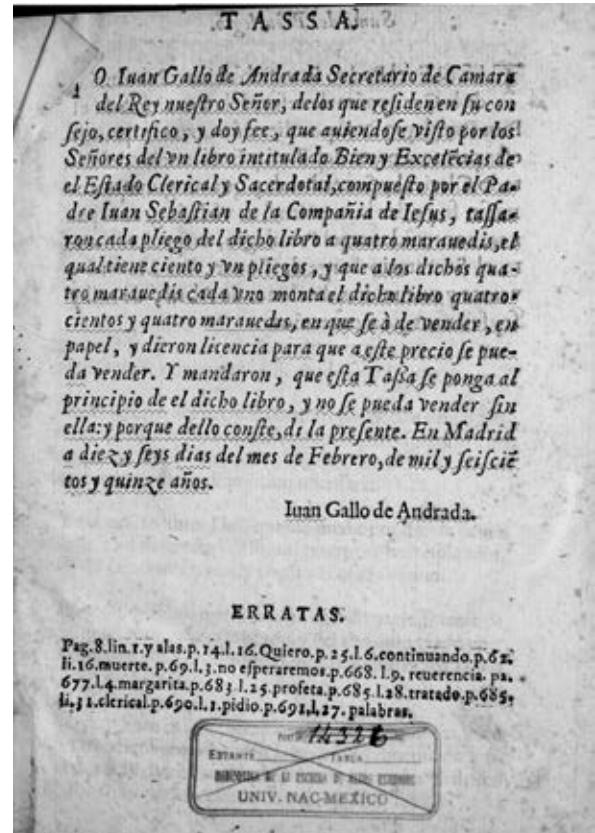 TASSA.
YO. Iuan Gallo de Andrada Secretario de Camara
del Rey nueſtro Señor, delos que reſiden en ſu con
ſejo, certifico, y doy fee, que auiendoſe viſto por los
Señores del vn libro intitulado Bien y Excelẽcias de
el Eſtado Clerical y Sacerdotal, compueſto por el Pa-
dre Iuan Sebaſtian de la Compañia de Ieſus, taſſa-
ron cada pliego del dicho libro a quatro marauedis, el
qual tiene ciento y vn pliegos, y que a los dichos qua-
tro marauedis cada vno monta el dicho libro quatro-
cientos y quatro marauedis, en que ſe à de vender, en
papel, y dieron licencia para que a eſte precio ſe pue-
da vender. Y mandaron, que eſta Taſſa ſe ponga al
principio de el dicho libro, y no ſe pueda vender ſin
ella: y porque dello conſte, di la preſente. En Madrid
a diez y ſeys dias del mes de Febrero, de mil y ſeiſciẽ
tos y quinze años.
Iuan Gallo de Andrada.
ERRATAS.
Pag.8.lin.1.y alas.p.14.l.16.Quiero.p.25.l.6.continuando.p.62.
li.16.muerte.p.69.l.3.no eſperaremos.p.668.l.9.reuerencia.pa.
677.l.4.margarita.p.683.l.25.profeta.p.685.l.28.tratado.p.685.
li.31.clerical.p.690.l.1.pidio.p.691.l.27.palabras.
14326
ESTANTE TABLA
UNIV. NAC-MEXICO